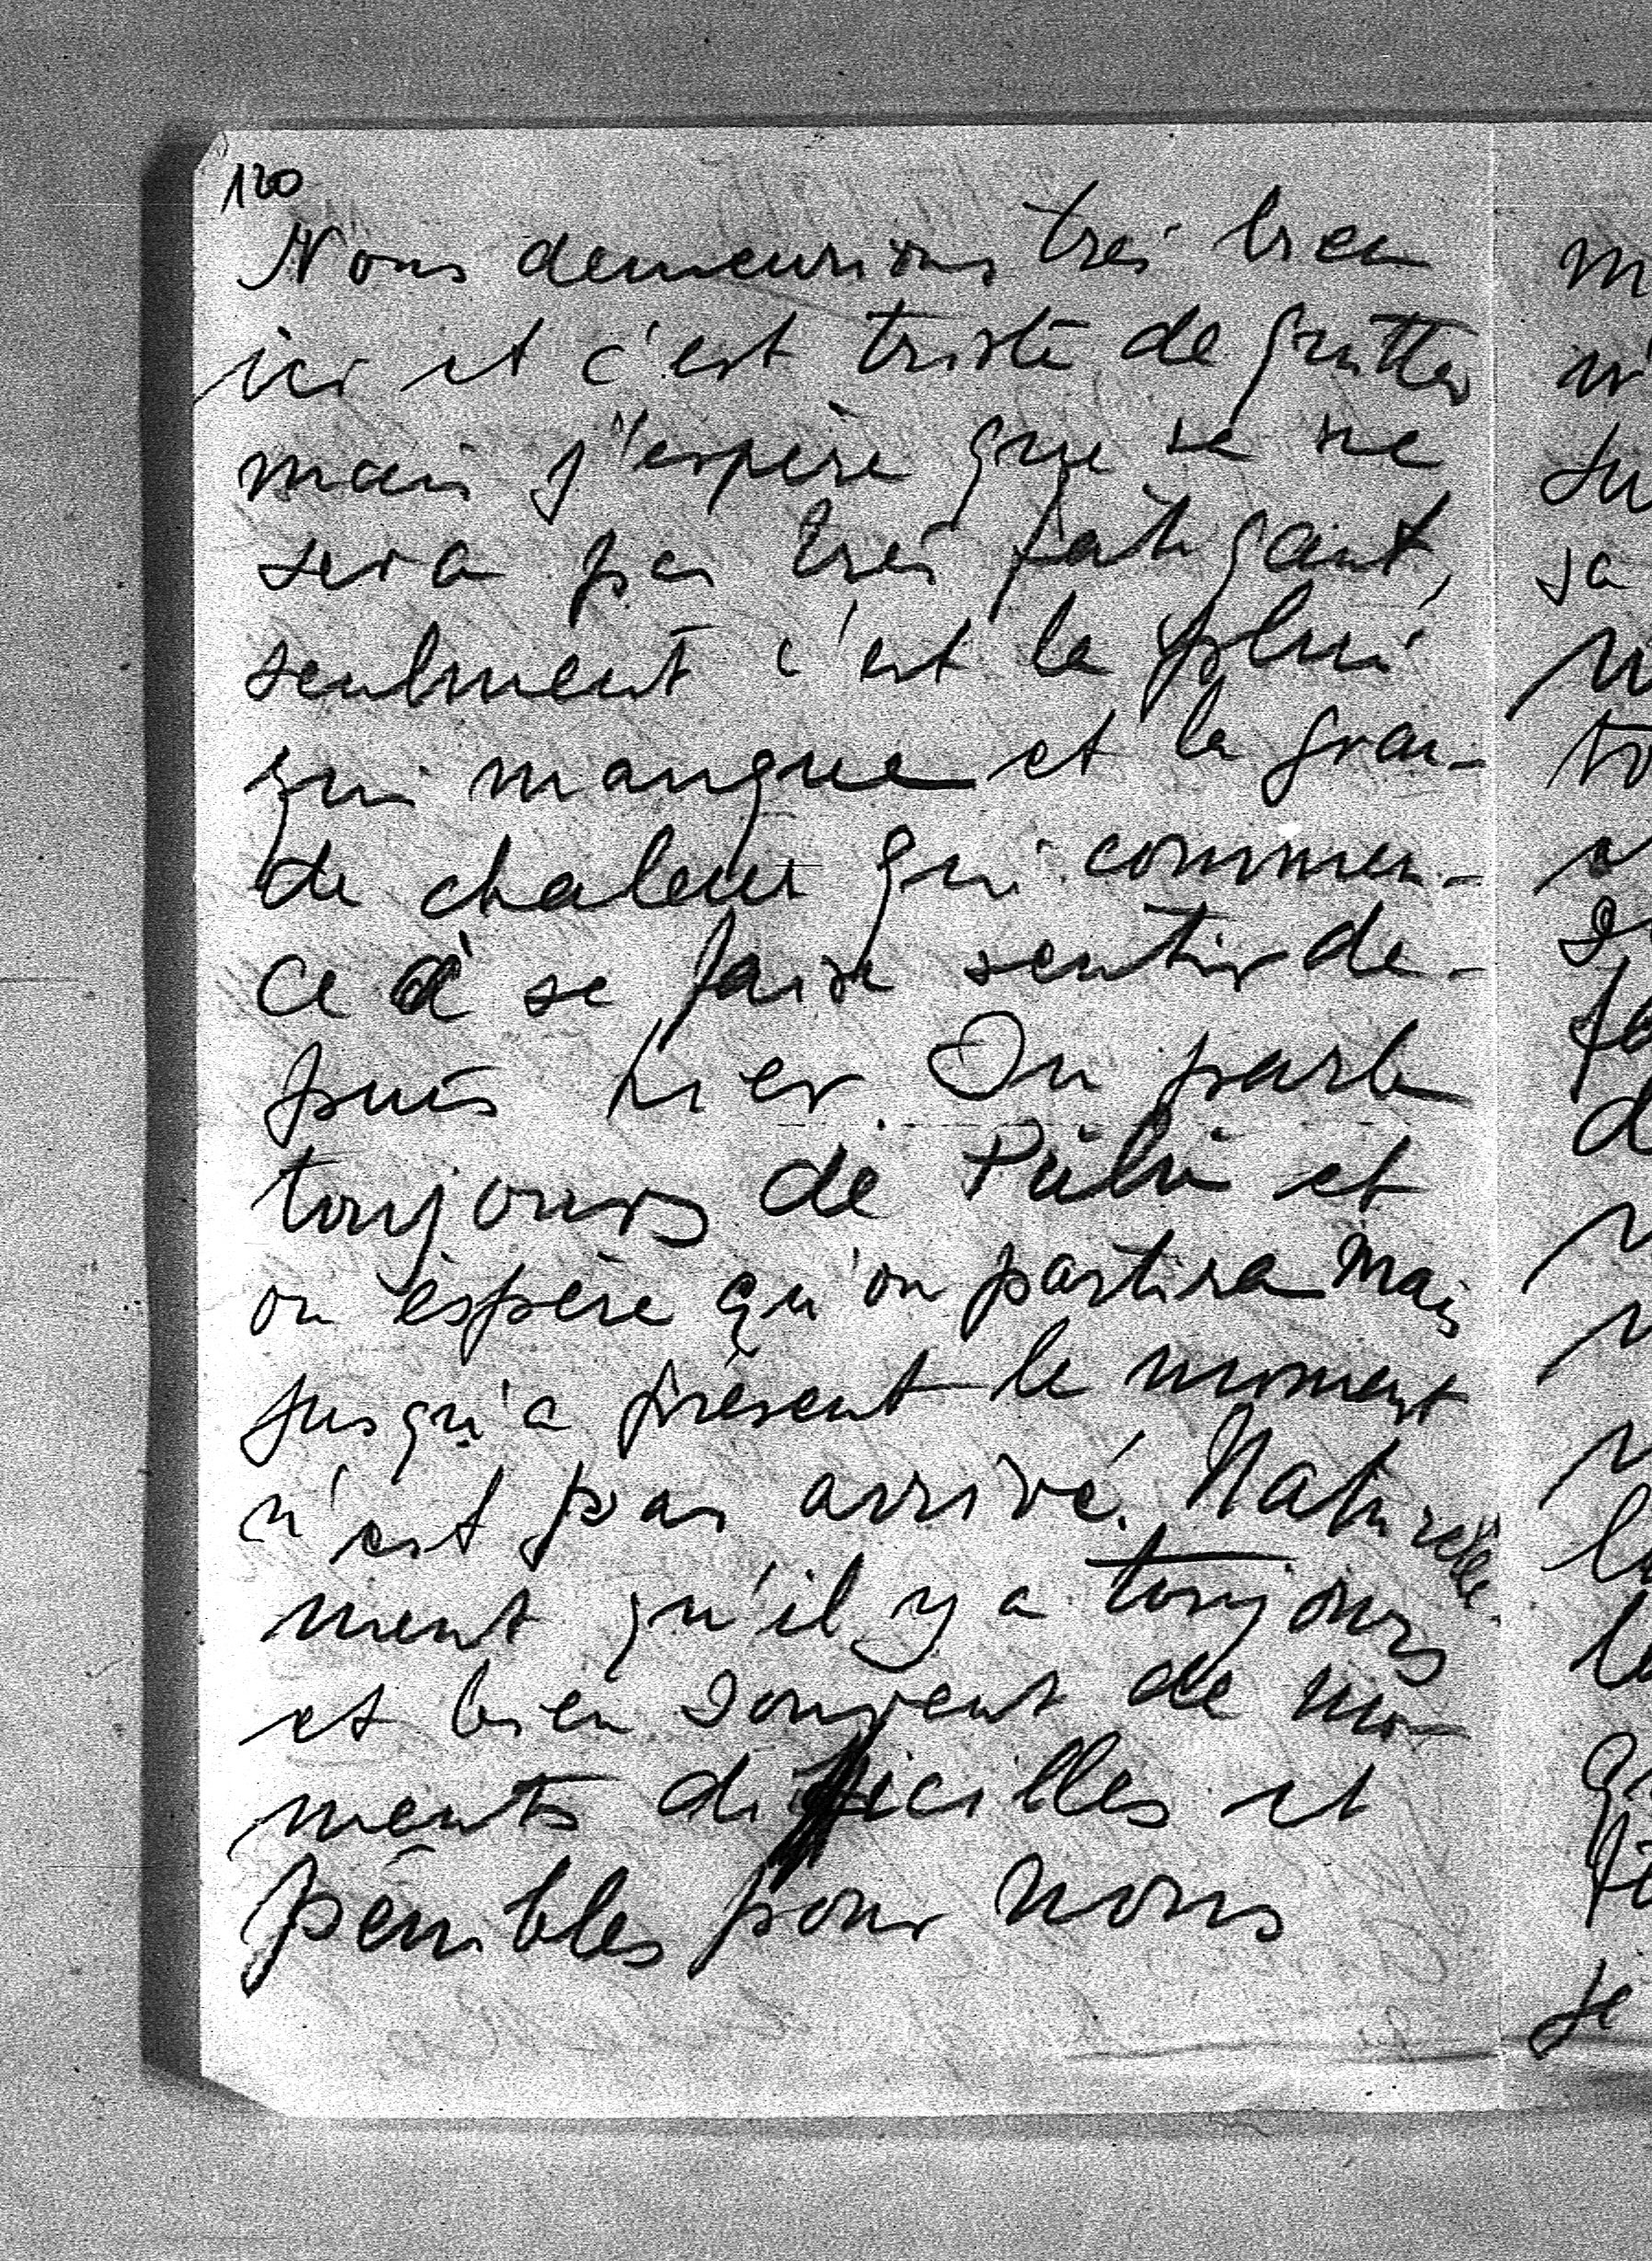 120
Nous demeurions tres bien
ici et c'est triste de quitter
mais j'espère que se ne
sera pas tres fatigant,
seulment c'est la plui
qui manque et la gran-
de chaleur qui commen-
ce à se faire sentir de-
puis hier. On parle
toujours de et
on espère qu'on partira mais
jusqu'a présent le moment
n'est pas arrivé. Naturelle-
ment qu'il y a toujours
et bien souvent de mo-
ments difficilles et
pénibles pour nous
sa
je